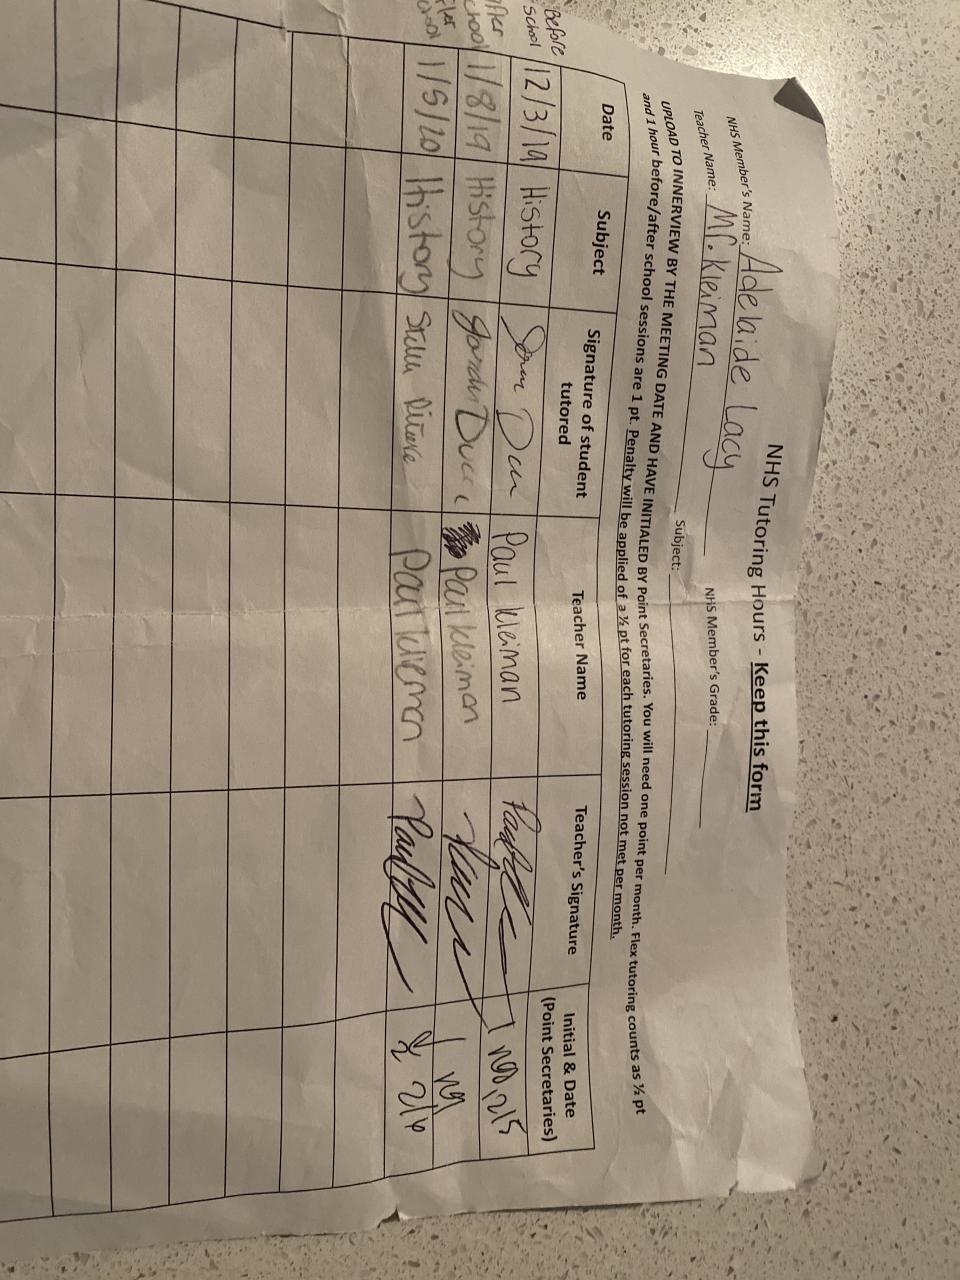 NHS Tutoring Hours - Keep this form
NHS Member's Name: Adelaide Lacy NHS Member's Grade:
Teacher Name: Mr. Kleiman Subject:
UPLOAD TO INNERVIEW BY THE MEETING DATE AND HAVE INITIALED BY Point Secretaries. You will need one point per month. Flex tutoring counts as ½ pt
and 1 hour before/after school sessions are 1 pt. Penalty will be applied of a ½ pt for each tutoring session not met per month.
Date Subject Signature of student tutored Teacher Name Teacher's Signature Initial & Date (Point Secretaries)
Before school 12/3/19 History Paul Kleiman
After school 1/8/19 History Paul Kleiman
1/9/20 History Paul Klieman 2/6